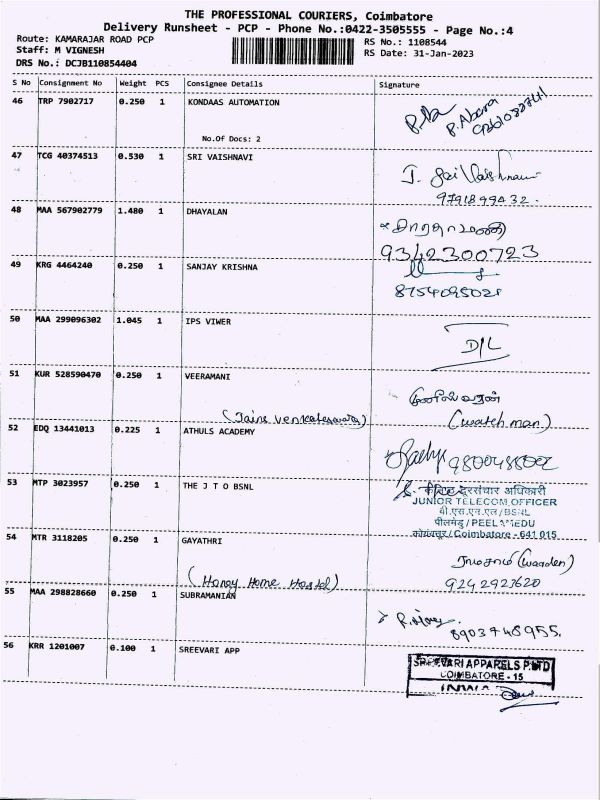 THE PROFESSIONAL COURIERS, Coimbatore
Delivery Runsheet - PCP - Phone No.:0422-3505555 - Page No.:4
Route: KAMARAJAR ROAD PCP
Staff: M VIGNESH
DRS No.: DCJB110854404
RS No.: 1108544
RS Date: 31-Jan-2023
S No Consignment No Weight PCS Consignee Details Signature
46 TRP 7902717 0.250 1 KONDAAS AUTOMATION
No.Of Docs: 2
47 TCG 40374513 0.530 1 SRI VAISHNAVI
J. Sai Vaishnavi
9791899432.
48 MAA 567902779 1.480 1 DHAYALAN
9342300723
49 KRG 4464240 0.250 1 SANJAY KRISHNA
50 MAA 299096302 1.045 1 IPS VIWER
D/L
51 KUR 528590470 0.250 1 VEERAMANI
(Jains Venkateswara)
(watch man)
52 EDQ 13441013 0.225 1 ATHULS ACADEMY
53 MTP 3023957 0.250 1 THE J T O BSNL
कनिष्ठ दूरसंचार अधिकारी
JUNIOR TELECOM OFFICER
बी.एस.एन.एल/BSNL
पीलमेडु/PEELAMEDU
कोयंबत्तूर/Coimbatore - 641 015
54 MTR 3118205 0.250 1 GAYATHRI
(Honey Home Hostel)
(warden)
9242927620
55 MAA 298828660 0.250 1 SUBRAMANIAN
8903748955.
56 KRR 1201007 0.100 1 SREEVARI APP
SREEVARI APPARELS P LTD
COIMBATORE - 15